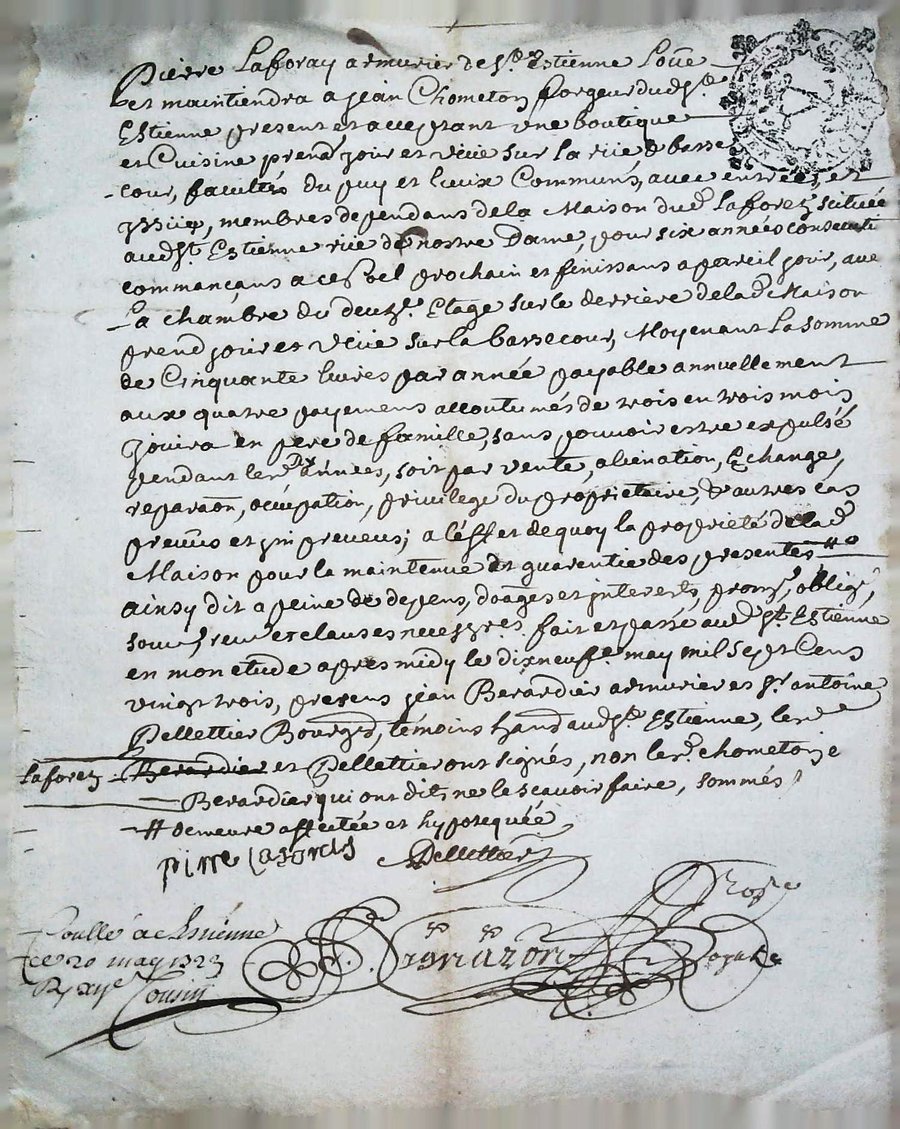 Pierre Laforay armurier de St. Estienne Loüe
et maintiendra a Jean Chometon forgeur dudt. St.
Estienne present et acceptant une boutique
et Cuisine prenant jour et veüe sur la rüe & basse
-cour, facultés du puy et lieux Communs, avec entrées et
yssües, membres dependans de la Maison dud. Laforez scituée
audt. St. Estienne rüe de nostre Dame, pour six années consecuti
commançans a ce Noel prochain et finissans a pareil jour, avec
La chambre du deuxe. Etage sur le derriere de lad. Maison
prend jour et veüe sur la basse cour, Moyenant La somme
de Cinquante livres par année payable annuellement
aux quatre payemens accoutumés de trois en trois mois
Jouira en pere de famille, sans pouvoir estre expulsé
pendant les dx. années, soit par vente, alienation, Echange,
reparaon, occupation, privilege du proprietaire, & autres cas
preveus et impreveus; a l'effet de quoy la proprieté de lad.
Maison pour la maintenüe et guarentie des presentes #
ainsy dit a peine de depens, doages et interests, proms., oblig.,
soum., renon. et clauses necessres. fait et passé aud. St. Estienne
en mon etude apres midy le dixneufe. may mil sept Cens
vingt trois, presens Jean Berardier armurier et Sr. antoine
Pellettier Bourgs., témoins audt. St. Estienne, les d.
Laforez - Berardier et Pellettier ont signés, non les d. chometon &
Berardier qui ont dit ne le scavoir faire, sommés /
# demeure affectée et hypotequée
pierre laforest Pellettier
Coullé a St. Estienne
ce 20 may 1723
R xije Cousin
royale